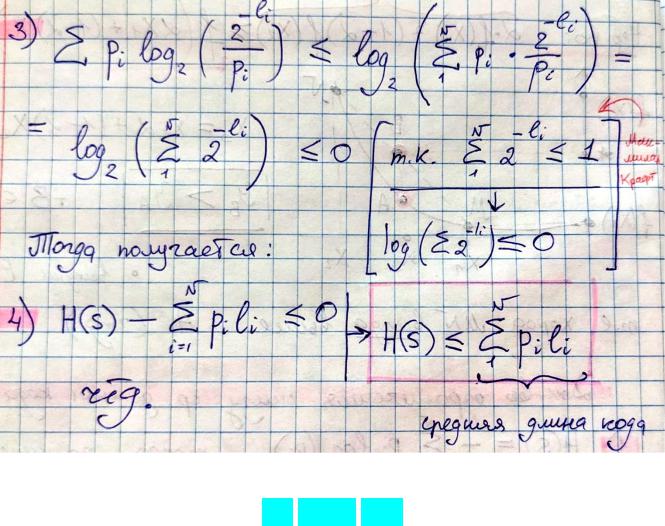 3) ∑ pᵢ log₂ (2^(-lᵢ) / pᵢ) ≤ log₂ (∑₁ᴺ pᵢ · 2^(-lᵢ) / pᵢ) =
= log₂ (∑₁ᴺ 2^(-lᵢ)) ≤ 0 [т.к. ∑₁ᴺ 2^(-lᵢ) ≤ 1
Мак-
милан
Крафт
↓
log (∑ 2^(-lᵢ)) ≤ 0]
Тогда получается:
4) H(S) − ∑ᵢ₌₁ᴺ pᵢ lᵢ ≤ 0 | → H(S) ≤ ∑₁ᴺ pᵢ lᵢ
чтд.
средняя длина кода